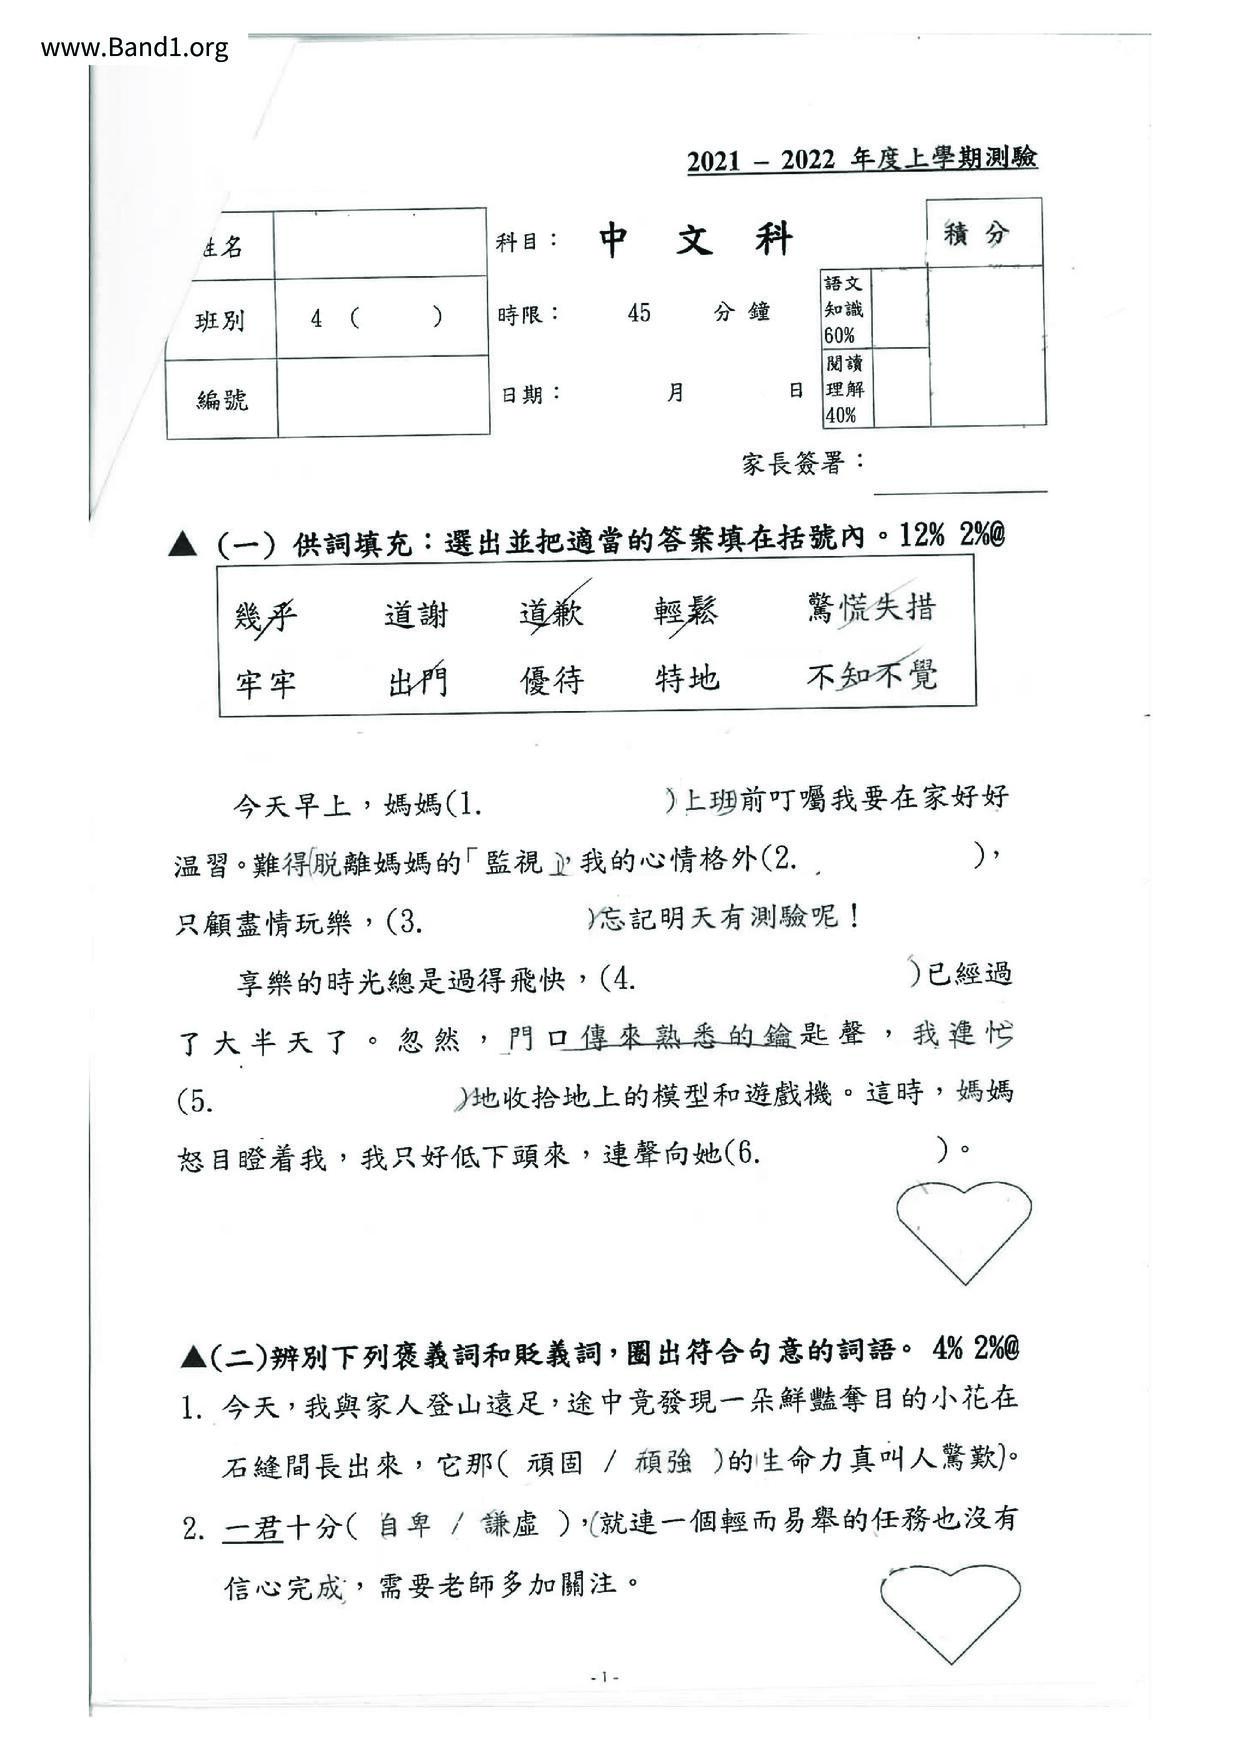 www.Band1.org
2021 – 2022 年度上學期測驗
姓名
科目： 中 文 科
積分
班別 4 ( )
時限： 45 分鐘
語文知識 60%
編號
日期： 月 日
閱讀理解 40%
家長簽署：
▲ (一) 供詞填充：選出並把適當的答案填在括號內。12% 2%@
幾乎 道謝 道歉 輕鬆 驚慌失措
牢牢 出門 優待 特地 不知不覺
今天早上，媽媽(1. )上班前叮囑我要在家好好
温習。難得脱離媽媽的「監視」，我的心情格外(2. )，
只顧盡情玩樂，(3. )忘記明天有測驗呢！
享樂的時光總是過得飛快，(4. )已經過
了大半天了。忽然，門口傳來熟悉的鑰匙聲，我連忙
(5. )地收拾地上的模型和遊戲機。這時，媽媽
怒目瞪着我，我只好低下頭來，連聲向她(6. )。
▲(二)辨別下列褒義詞和貶義詞，圈出符合句意的詞語。 4% 2%@
1. 今天，我與家人登山遠足，途中竟發現一朵鮮豔奪目的小花在
石縫間長出來，它那( 頑固 / 頑強 )的生命力真叫人驚歎。
2. 一君十分( 自卑 / 謙虛 )，就連一個輕而易舉的任務也沒有
信心完成，需要老師多加關注。
- 1 -